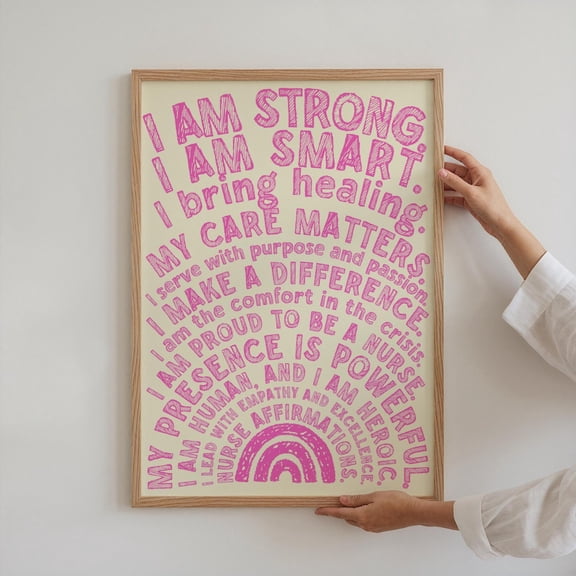 I AM STRONG.
I AM SMART.
I bring healing.
MY CARE MATTERS.
I serve with purpose and passion.
I MAKE A DIFFERENCE.
I am the comfort in the crisis.
I AM PROUD TO BE A NURSE.
MY PRESENCE IS POWERFUL.
I AM HUMAN, AND I AM HEROIC.
I LEAD WITH EMPATHY AND EXCELLENCE.
NURSE AFFIRMATIONS.